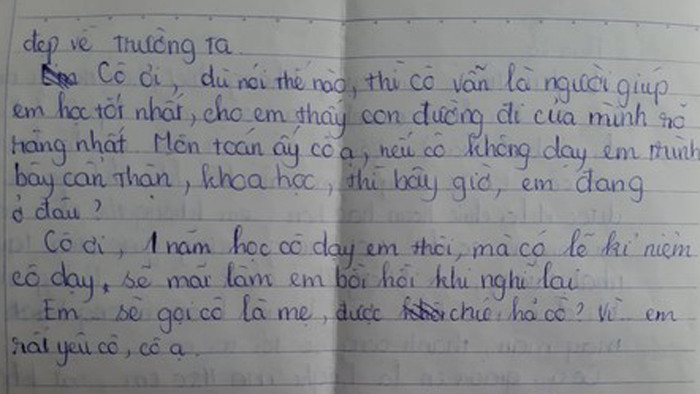 đẹp về trường ta.
Cô ơi, dù nói thế nào, thì cô vẫn là người giúp
em học tốt nhất, cho em thấy con đường đi của mình rõ
ràng nhất. Môn toán ấy cô ạ, nếu cô không dạy em trình
bày cẩn thận, khoa học, thì bây giờ, em đang
ở đâu?
Cô ơi, 1 năm học cô dạy em thôi, mà có lẽ kỉ niệm
cô dạy, sẽ mãi làm em bồi hồi khi nghĩ lại
Em sẽ gọi cô là mẹ, được chứ hả cô? Vì em
rất yêu cô, cô ạ.